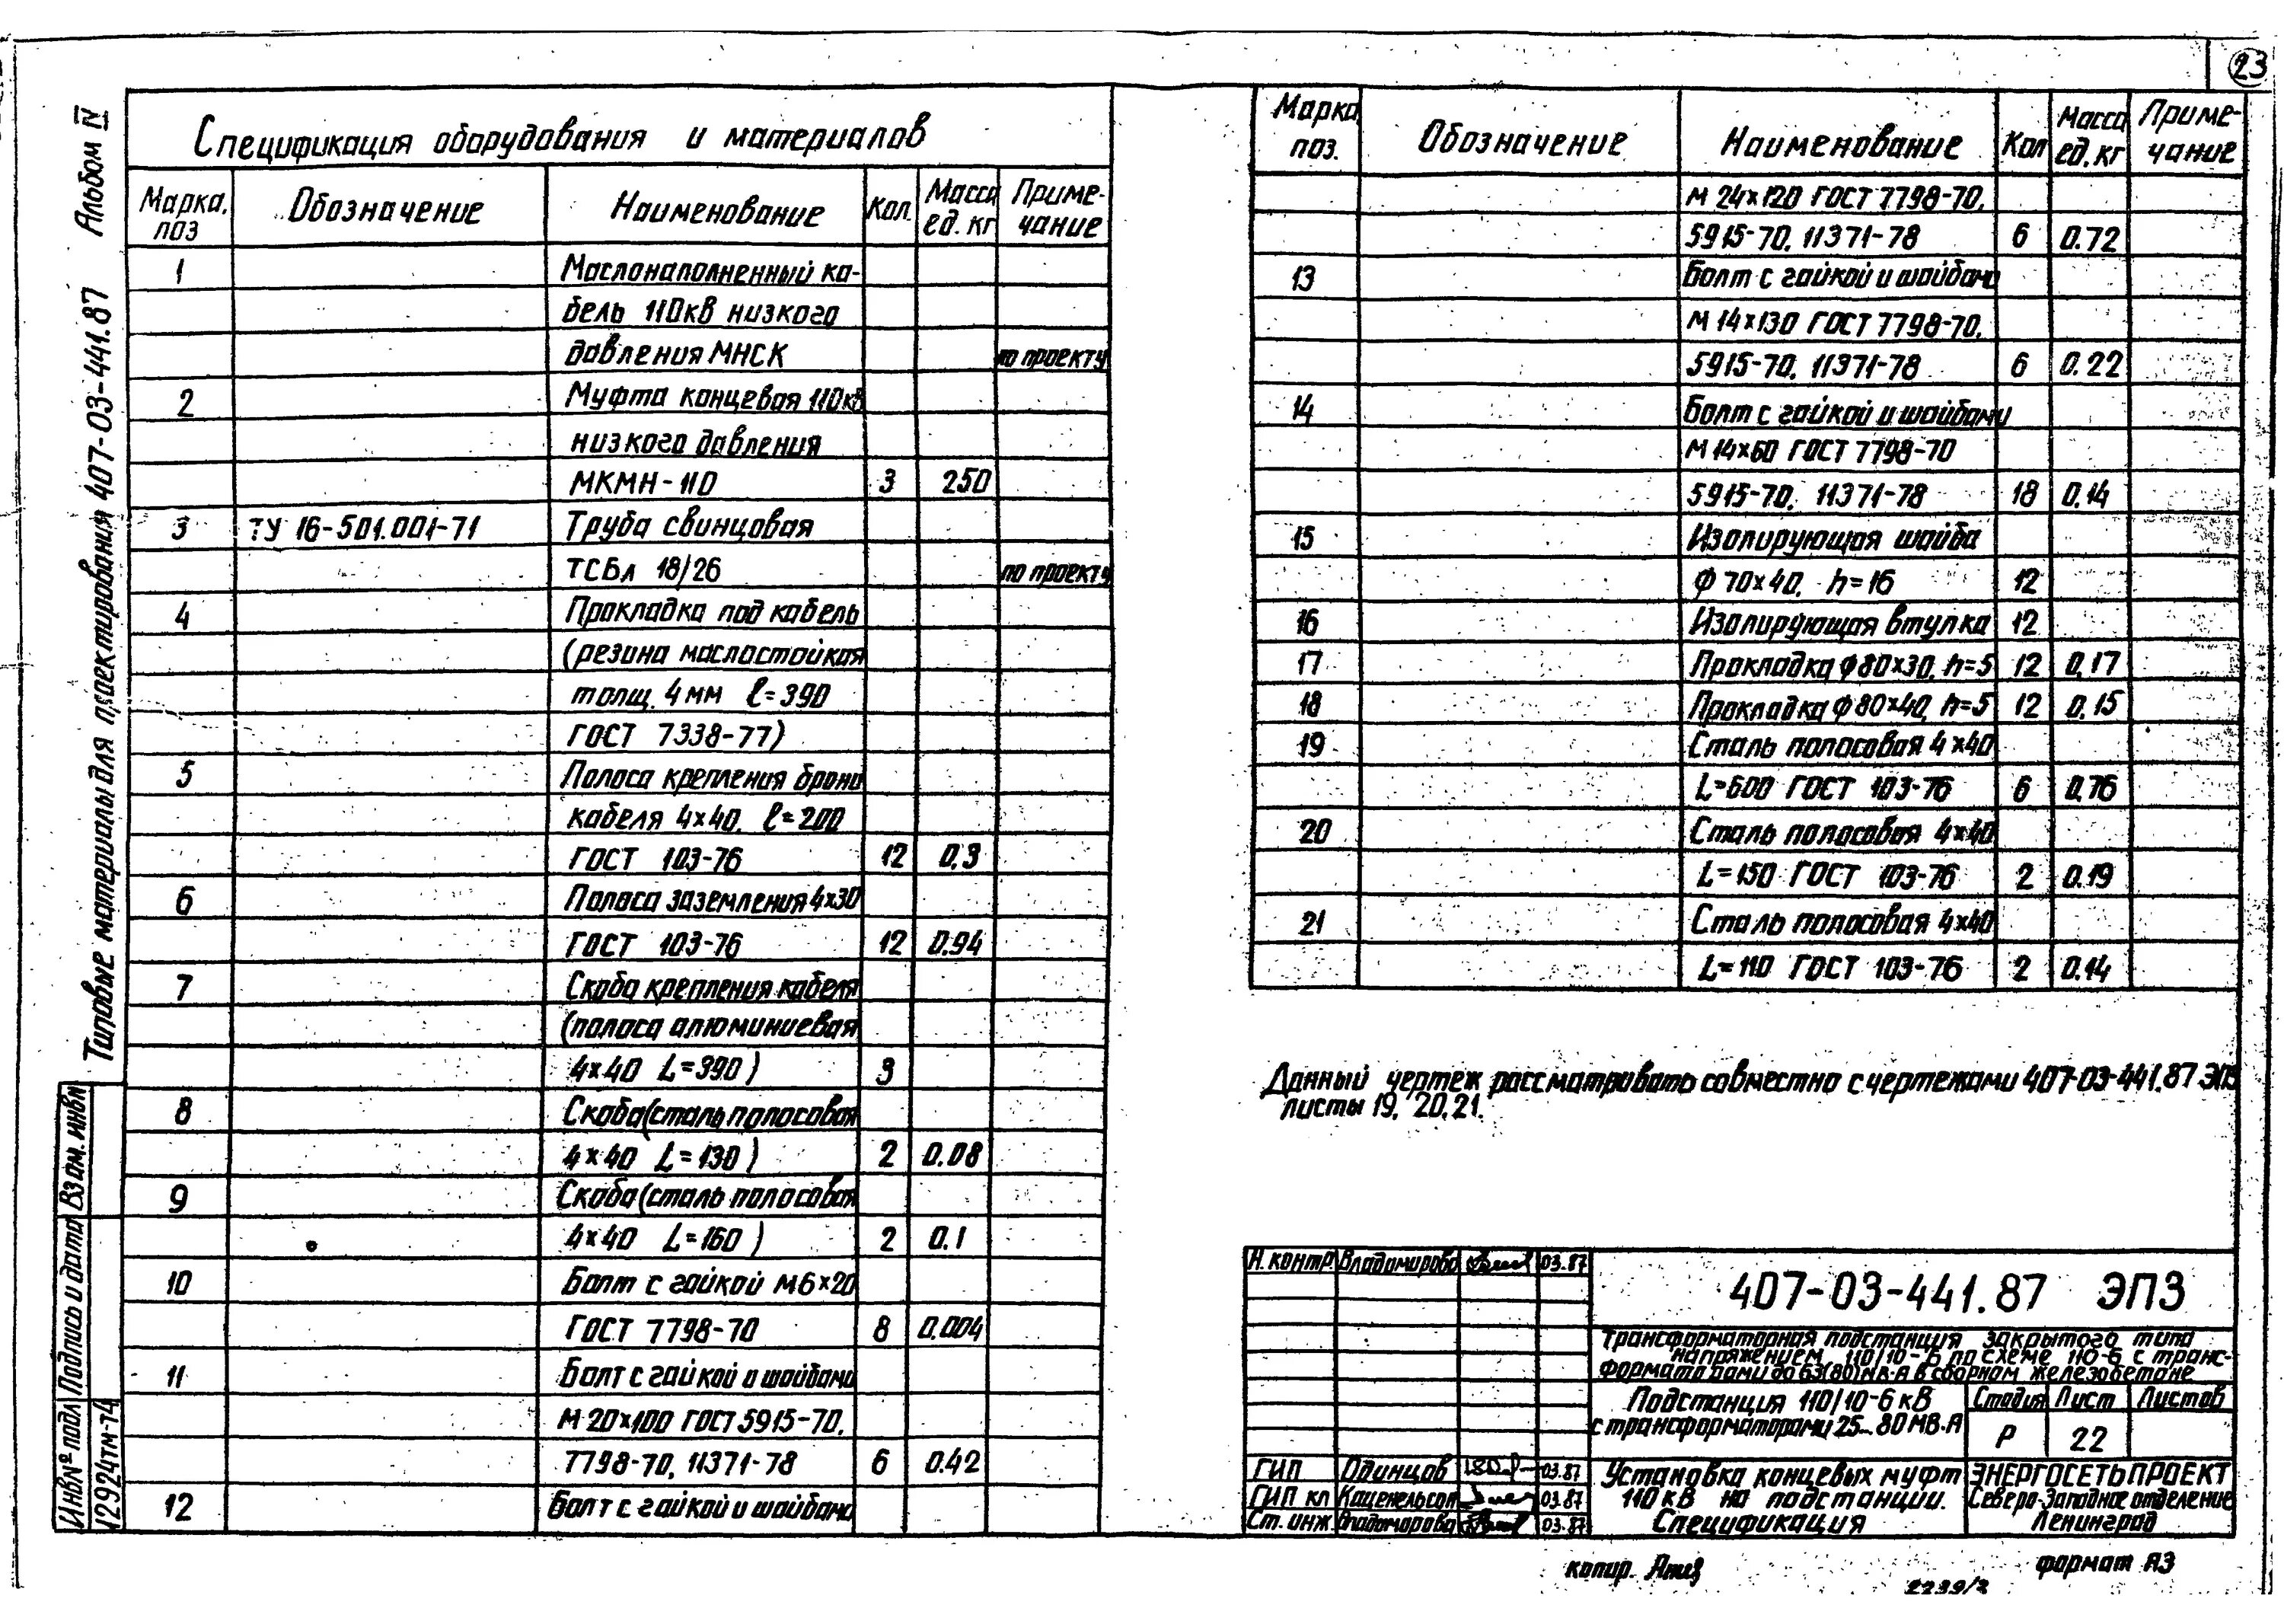 23
Альбом IV
Типовые материалы для проектирования 407-03-441.87
Спецификация оборудования и материалов
Марка, поз Обозначение Наименование Кол. Масса ед. кг Приме-чание
1 Маслонаполненный ка-
бель 110кВ низкого
давления МНСК по проекту
2 Муфта концевая 110кВ
низкого давления
МКМН-110 3 250
3 ТУ 16-501.001-71 Труба свинцовая
ТСБл 18/26 по проекту
4 Прокладка под кабель
(резина маслостойкая
толщ. 4мм l=390
ГОСТ 7338-77)
5 Полоса крепления брони
кабеля 4×40, l=200
ГОСТ 103-76 12 0,3
6 Полоса заземления 4×30
ГОСТ 103-76 12 0.94
7 Скоба крепления кабеля
(полоса алюминиевая
4×40 L=390) 3
8 Скоба(сталь полосовая
4×40 L=130) 2 0.08
9 Скоба(сталь полосовая
4×40 L=160) 2 0.1
10 Болт с гайкой М6×20
ГОСТ 7798-70 8 0.004
11 Болт с гайкой и шайбами
М20×100 ГОСТ 5915-70,
7798-70, 11371-78 6 0.42
12 Болт с гайкой и шайбами
Марка поз. Обозначение Наименование Кол Масса ед. кг Приме-чание
М 24×120 ГОСТ 7798-70,
5915-70, 11371-78 6 0.72
13 Болт с гайкой и шайбами
М 14×130 ГОСТ 7798-70,
5915-70, 11371-78 6 0.22
14 Болт с гайкой и шайбами
М 14×60 ГОСТ 7798-70
5915-70, 11371-78 18 0.14
15 Изолирующая шайба
Ф 70×40, h=16 12
16 Изолирующая втулка 12
17 Прокладка Ф80×30, h=5 12 0,17
18 Прокладка Ф80×40, h=5 12 0,15
19 Сталь полосовая 4×40
L=600 ГОСТ 103-76 6 0,76
20 Сталь полосовая 4×40
L=150 ГОСТ 103-76 2 0.19
21 Сталь полосовая 4×40
L=110 ГОСТ 103-76 2 0.14
Данный чертеж рассматривать совместно с чертежами 407-03-441.87 ЭПЗ
листы 19, 20,21.
Н. контр. Владимирова 03.87
407-03-441.87 ЭПЗ
Трансформаторная подстанция закрытого типа
напряжением 110/10-6 по схеме 110-6 с транс-
форматорами до 63(80)МВ·А в сборном железобетоне
Подстанция 110/10-6кВ
с трансформаторами 25...80 МВ.А
Стадия Лист Листов
Р 22
ГИП Одинцов 03.87
ГИП кл Каценельсон 03.87
Ст. инж. Владимирова 03.87
Установка концевых муфт
110кВ на подстанции.
Спецификация
ЭНЕРГОСЕТЬПРОЕКТ
Северо-Западное отделение
Ленинград
Взам. инв№
Подпись и дата
Инв№ подл
12924тм-т4
копир.
формат А3